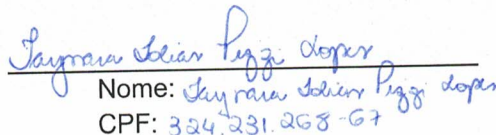 Taynara Tobias Pezzi Lopes
Nome: Taynara Tobias Pezzi Lopes
CPF: 324.231.268-67